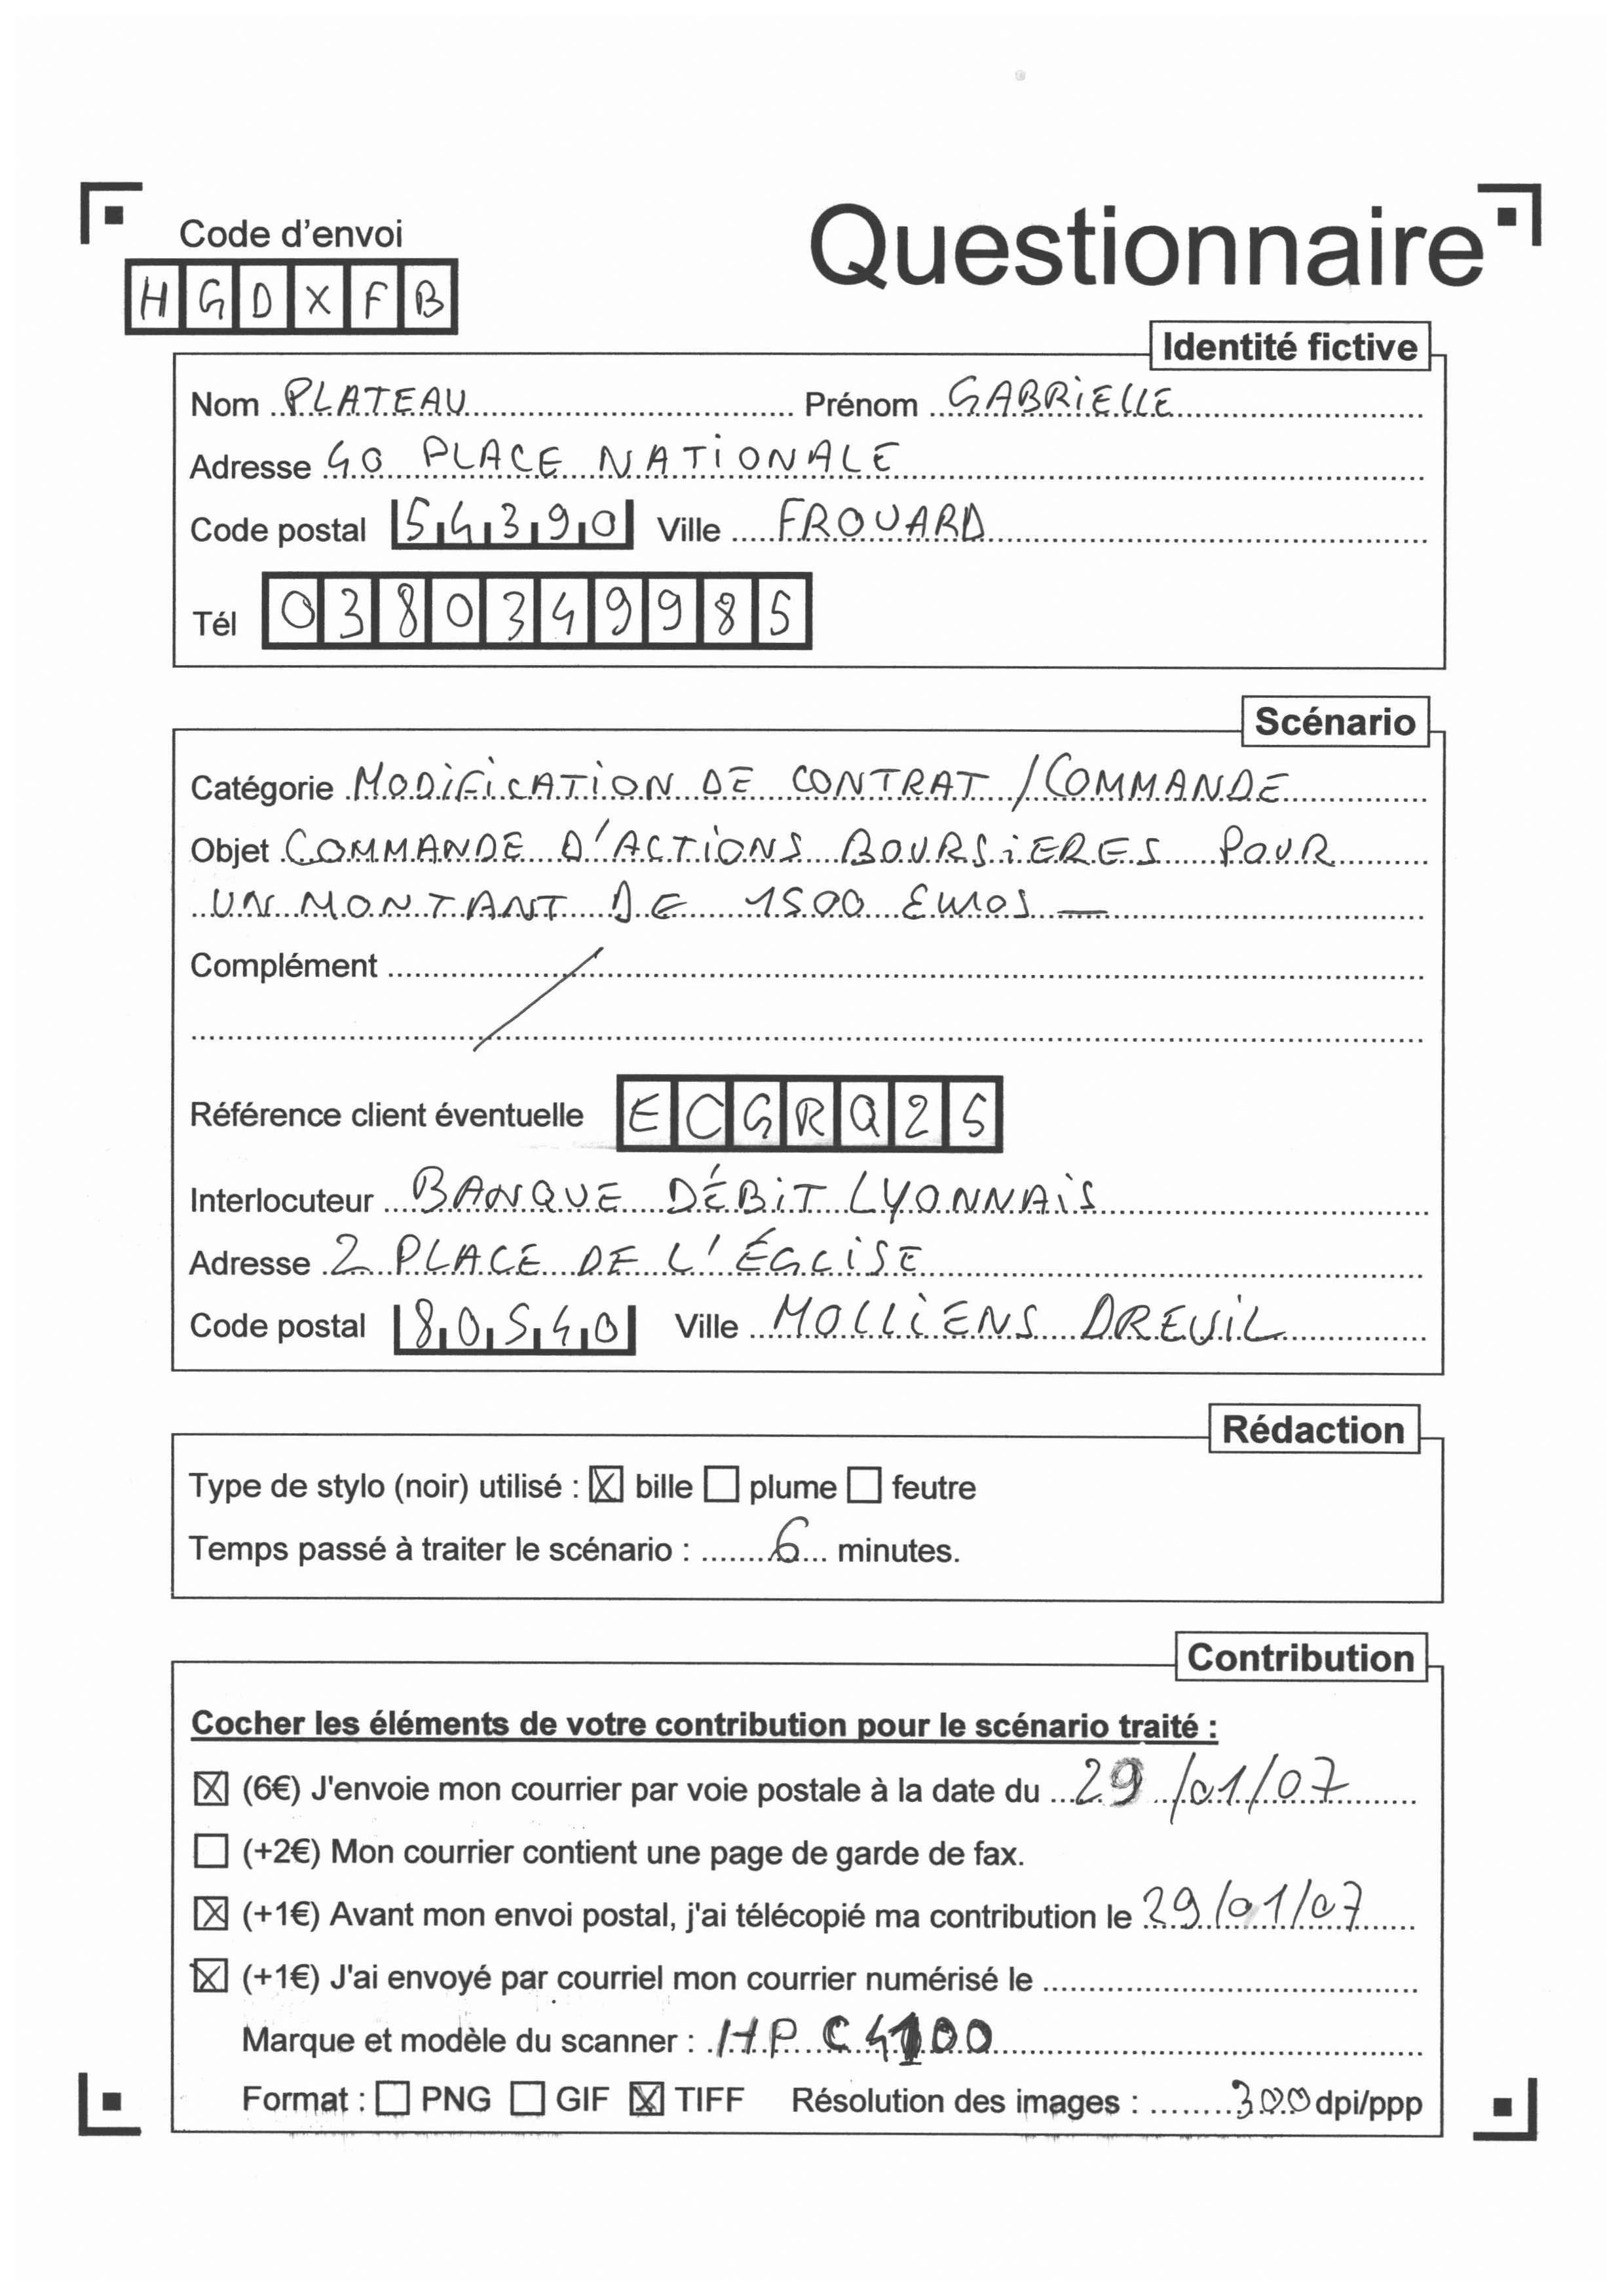 Code d'envoi
Questionnaire
HGDXFB
Identité fictive
Nom PLATEAU Prénom GABRIELLE
Adresse 40 PLACE NATIONALE
Code postal 54390 Ville FROUARD
Tél 0380349985
Scénario
Catégorie MODIFICATION DE CONTRAT / COMMANDE
Objet COMMANDE D'ACTIONS BOURSIERES POUR
UN MONTANT DE 1500 Euros —
Complément
Référence client éventuelle ECGRQ25
Interlocuteur BANQUE DÉBIT LYONNAIS
Adresse 2 PLACE DE L'ÉGLISE
Code postal 80540 Ville MOLLIENS DREUIL
Rédaction
Type de stylo (noir) utilisé : ☒ bille ☐ plume ☐ feutre
Temps passé à traiter le scénario : 6 minutes.
Contribution
Cocher les éléments de votre contribution pour le scénario traité :
☒ (6€) J'envoie mon courrier par voie postale à la date du 29/01/07
☐ (+2€) Mon courrier contient une page de garde de fax.
☒ (+1€) Avant mon envoi postal, j'ai télécopié ma contribution le 29/01/07
☒ (+1€) J'ai envoyé par courriel mon courrier numérisé le
Marque et modèle du scanner : HP C4100
Format : ☐ PNG ☐ GIF ☒ TIFF Résolution des images : 300 dpi/ppp